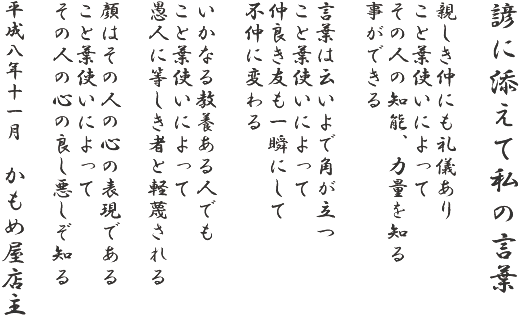 諺に添えて私の言葉
親しき仲にも礼儀あり
こと葉使いによって
その人の知能、力量を知る
事ができる
言葉は云いよで角が立つ
こと葉使いによって
仲良き友も一瞬にして
不仲に変わる
いかなる教養ある人でも
こと葉使いによって
愚人に等しき者と軽蔑される
顔はその人の心の表現である
こと葉使いによって
その人の心の良し悪しぞ知る
平成八年十一月　かもめ屋店主